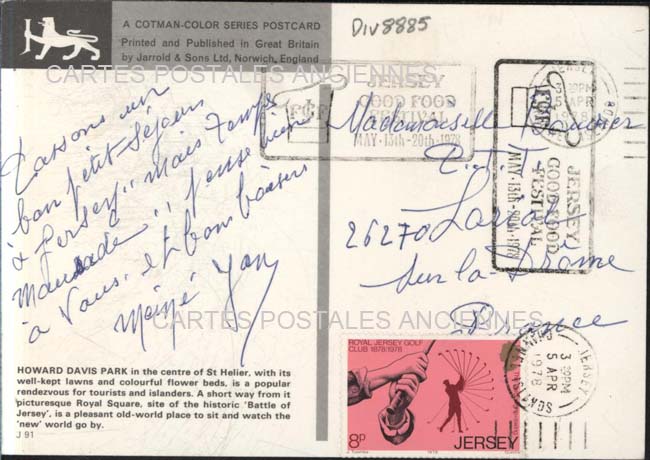 A COTMAN-COLOR SERIES POSTCARD
Printed and Published in Great Britain
by Jarrold & Sons Ltd, Norwich, England
Div8885
CARTES POSTALES ANCIENNES
JERSEY
GOOD FOOD
FESTIVAL
MAY·15th-20th·1978
JERSEY
GOOD FOOD
FESTIVAL
MAY·15th-20th·1978
JERSEY
3 30PM
5 APR
1978
Passons un
bon petit séjour
à Jersey, mais temps
maussade, pense bien
à Vous, et bons baisers
Yan
Mademoiselle
P.T.T.
26270 Loriol
sur la Drôme
France
CARTES POSTALES ANCIENNES
HOWARD DAVIS PARK in the centre of St Helier, with its
well-kept lawns and colourful flower beds, is a popular
rendezvous for tourists and islanders. A short way from it
picturesque Royal Square, site of the historic 'Battle of
Jersey', is a pleasant old-world place to sit and watch the
'new' world go by.
J 91
ROYAL JERSEY GOLF
CLUB 1878:1978
8p
1978
JERSEY
JERSEY
3 30PM
5 APR
1978